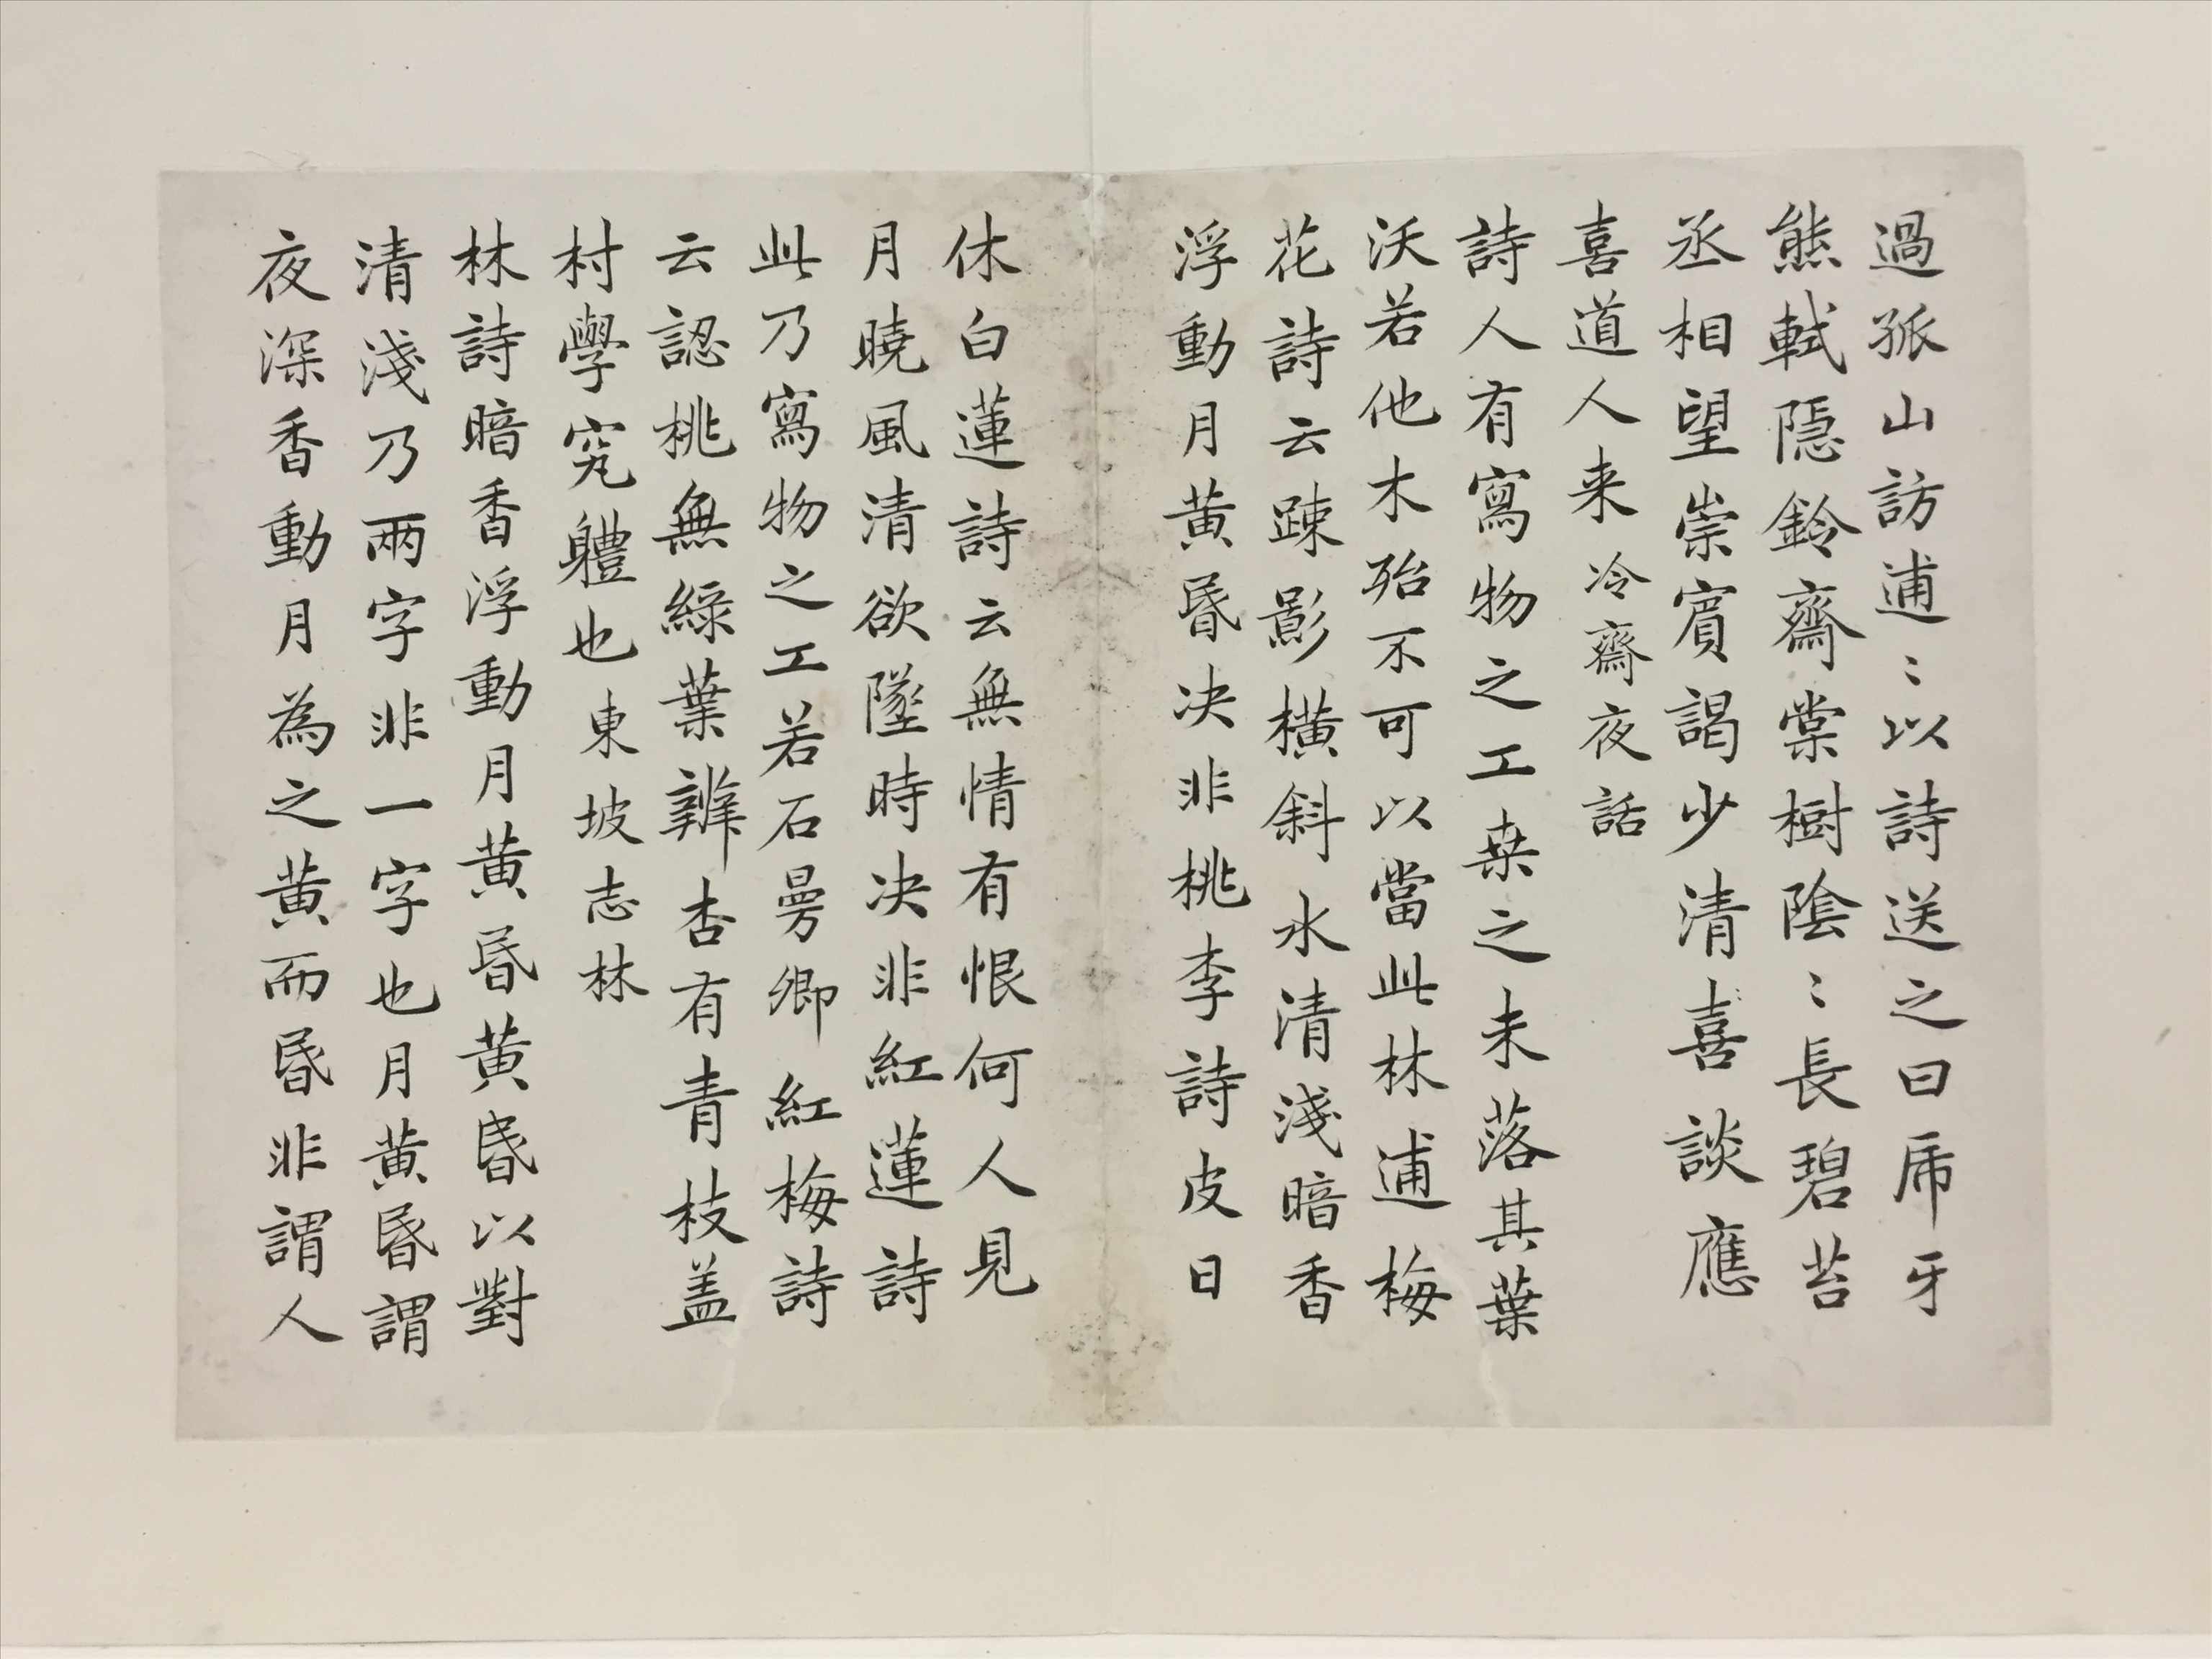 過孤山訪逋〻以詩送之曰虎牙
熊軾隱鈴齋棠樹陰〻長碧苔
丞相望崇賓謁少清喜談應
喜道人来冷齋夜話
詩人有寫物之工桒之未落其葉
沃若他木殆不可以當此林逋梅
花詩云踈影横斜水清淺暗香
浮動月黄昬决非桃李詩皮日
休白蓮詩云無情有恨何人見
月曉風清欲墜時决非紅蓮詩
此乃寫物之工若石曼卿紅梅詩
云認桃無綠葉辨杏有青枝盖
村學究軆也東坡志林
林詩暗香浮動月黄昬黄昬以對
清淺乃兩字非一字也月黄昬謂
夜深香動月為之黄而昬非謂人